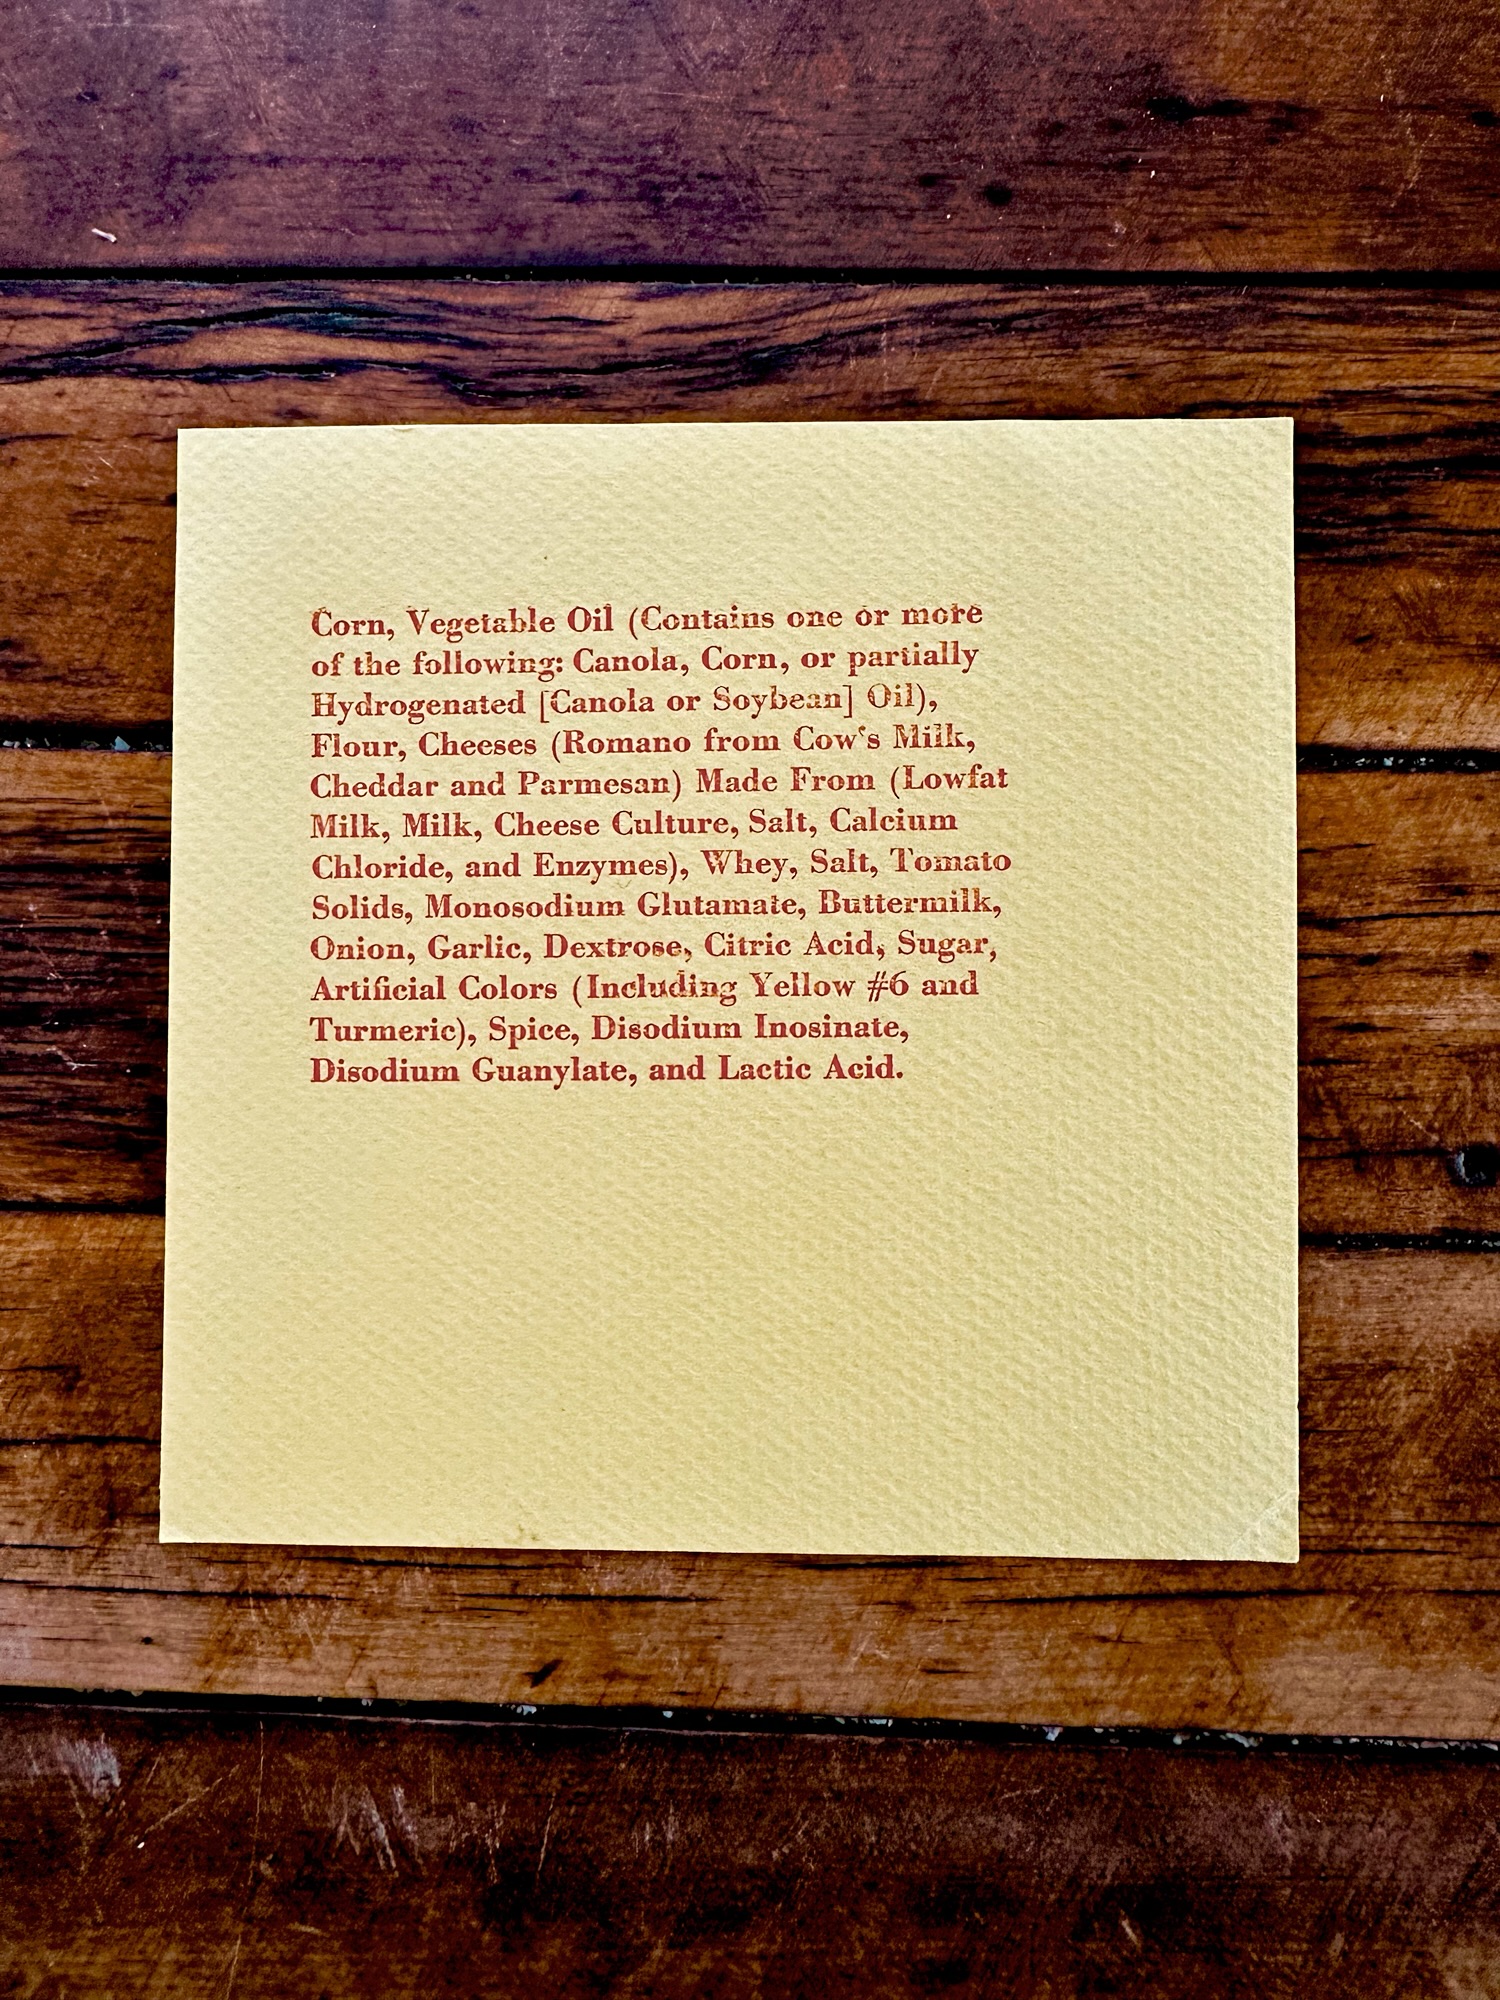 Corn, Vegetable Oil (Contains one or more
of the following: Canola, Corn, or partially
Hydrogenated [Canola or Soybean] Oil),
Flour, Cheeses (Romano from Cow‘s Milk,
Cheddar and Parmesan) Made From (Lowfat
Milk, Milk, Cheese Culture, Salt, Calcium
Chloride, and Enzymes), Whey, Salt, Tomato
Solids, Monosodium Glutamate, Buttermilk,
Onion, Garlic, Dextrose, Citric Acid, Sugar,
Artificial Colors (Including Yellow #6 and
Turmeric), Spice, Disodium Inosinate,
Disodium Guanylate, and Lactic Acid.